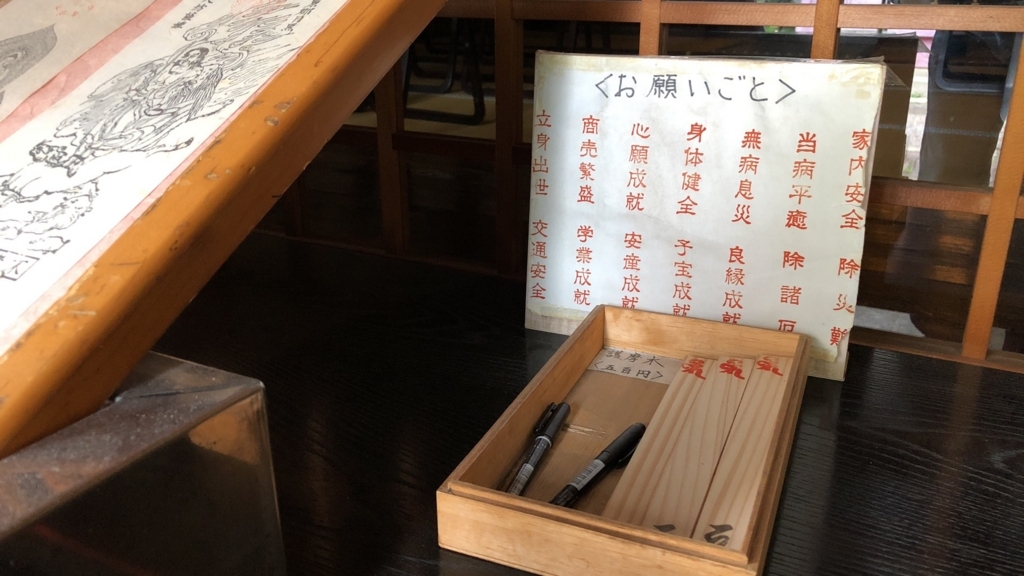 <お願いごと>
家内安全 除災難
当病平癒 除諸厄
無病息災 良縁成就
身体健全 子宝成就
心願成就 安童成就
商売繁盛 学業成就
立身出世 交通安全
護摩木
<五百円>